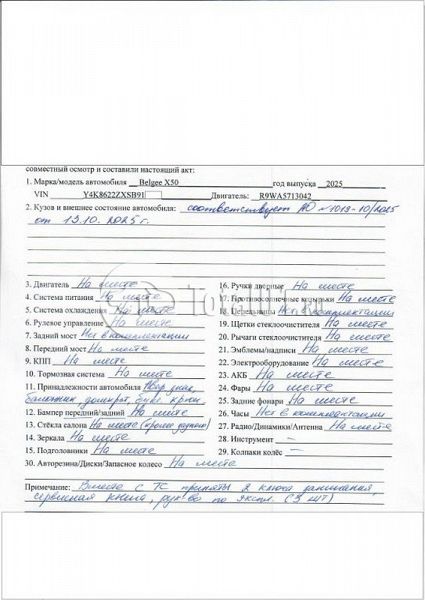 совместный осмотр и составили настоящий акт:
1. Марка/модель автомобиля Belgee X50 год выпуска 2025
VIN Y4K8622ZXSB91 Двигатель: R9WA5713042
2. Кузов и внешнее состояние автомобиля: соответствует АО №1013-10/2025
от 13.10.2025г.
3. Двигатель На месте
4. Система питания На месте
5. Система охлаждения На месте
6. Рулевое управление На месте
7. Задний мост Нет в комплектации
8. Передний мост На месте
9. КПП На месте
10. Тормозная система На месте
11. Принадлежности автомобиля знак,
балонник домкрат букс. крюк
12. Бампер передний/задний На месте
13. Стёкла салона На месте (кроме
14. Зеркала На месте
15. Подголовники На месте
16. Ручки дверные На месте
17. Противосолнечные козырьки На месте
18. Пепельницы Нет в комплектации
19. Щетки стеклоочистителя На месте
20. Рычаги стеклоочистителя На месте
21. Эмблемы/надписи На месте
22. Электрооборудование На месте
23. АКБ На месте
24. Фары На месте
25. Задние фонари На месте
26. Часы Нет в комплектации
27. Радио/Динамики/Антенна На месте
28. Инструмент –
29. Колпаки колёс –
30. Авторезина/Диски/Запасное колесо На месте
Примечание: Вместе с ТС приняты 2 ключа зажигания,
сервисная книга, рук-во по экспл. (3 шт)